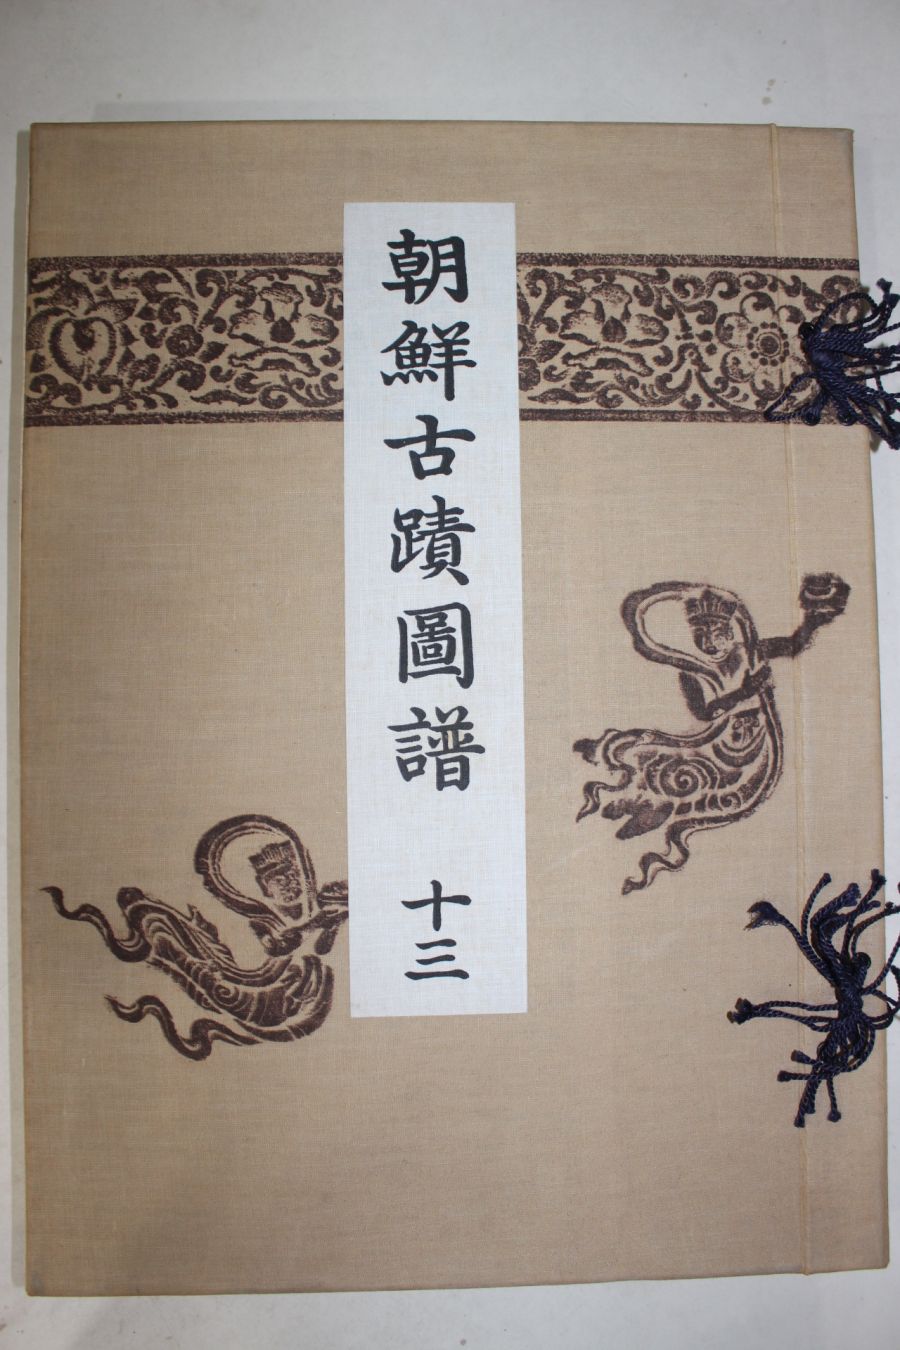 朝鮮古蹟圖譜 十三